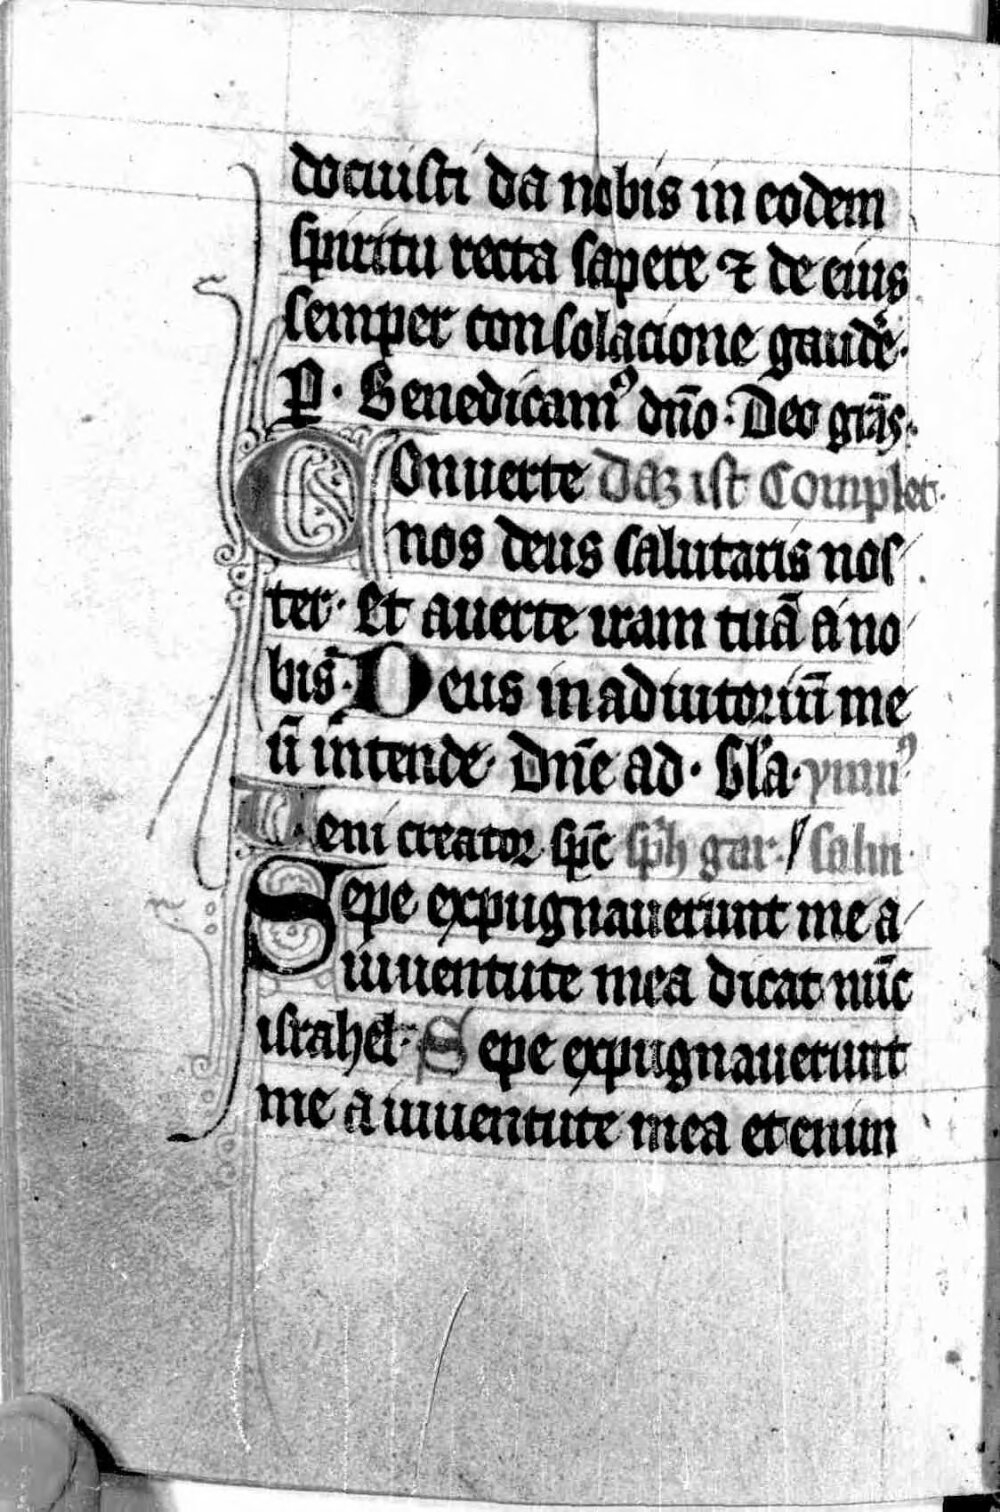 docuisti da nobis in eodem
spiritu recta sapere ⁊ de eius
semper consolacione gaude͛·
P̲· Benedicam᷒ dn̄o· Deo grā̄s·
Conuerte daꝫ ist Complet·
nos deus salutaris nos
ter· Et auerte iram tuā a no
bis̄· Deus in adiutoriū me
ū intende Dn̄e ad· Gl̄a· ymn᷒
Veni creator sp̄c sp̄h gar· / salm·
Sepe expugnauerunt me a
iuuentute mea dicat nūc
israhel· Sepe expugnauerunt
me a iuuentute mea etenim